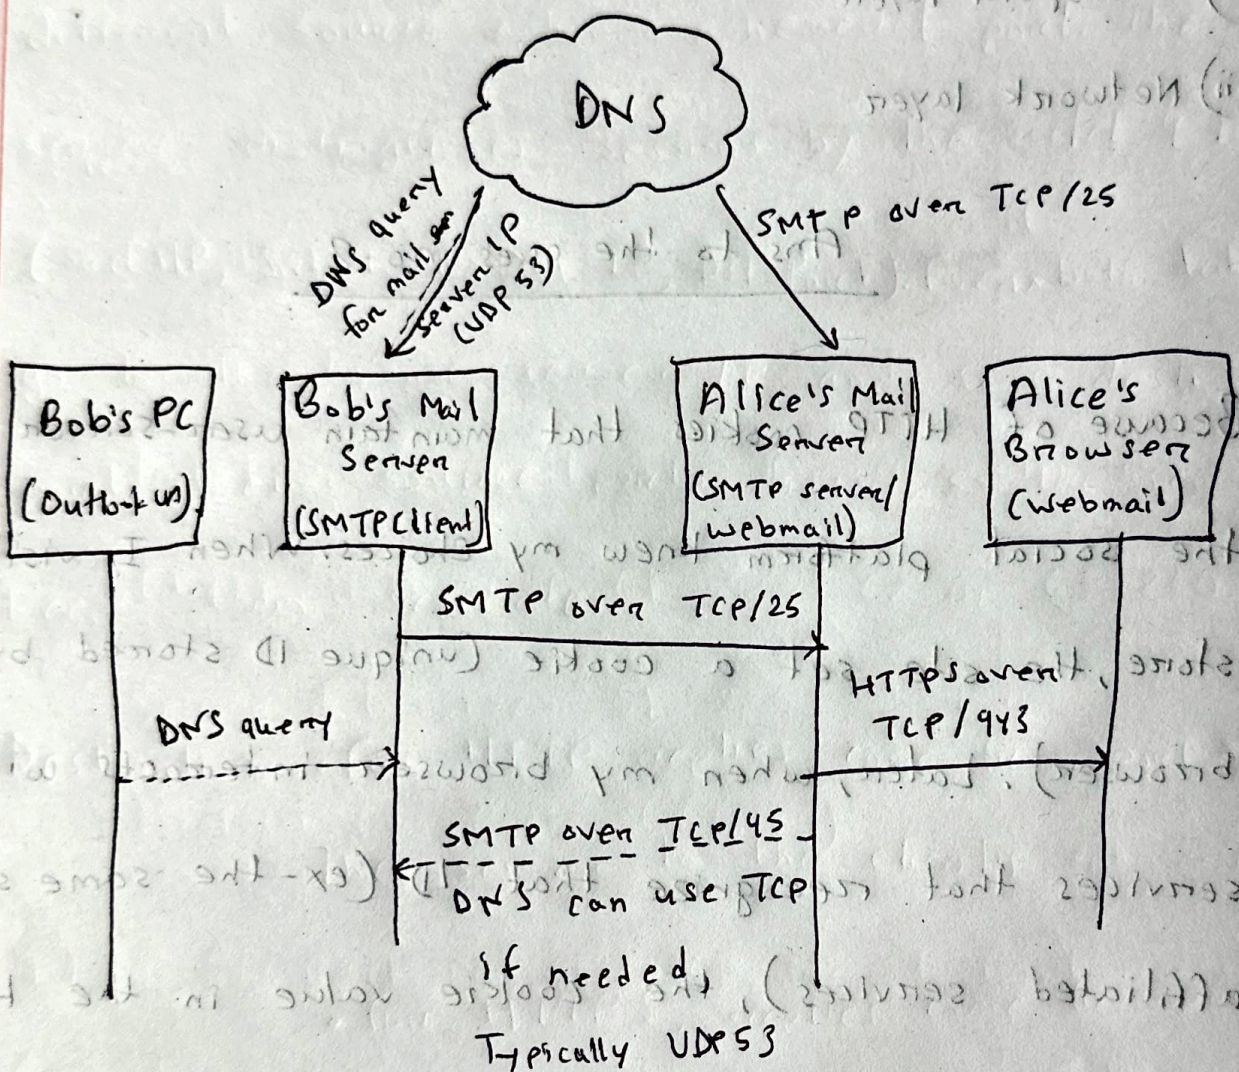 DNS
SMTP over TCP/25
DNS query
for mail
server IP
(UDP 53)
Bob's PC
(Outlook
Bob's Mail
Server
(SMTP Client)
Alice's Mail
Server
(SMTP server/
webmail)
Alice's
Browser
(webmail)
SMTP over TCP/25
HTTPS over
TCP/943
DNS query
SMTP over TCP/45
DNS can use TCP
if needed,
Typically UDP 53